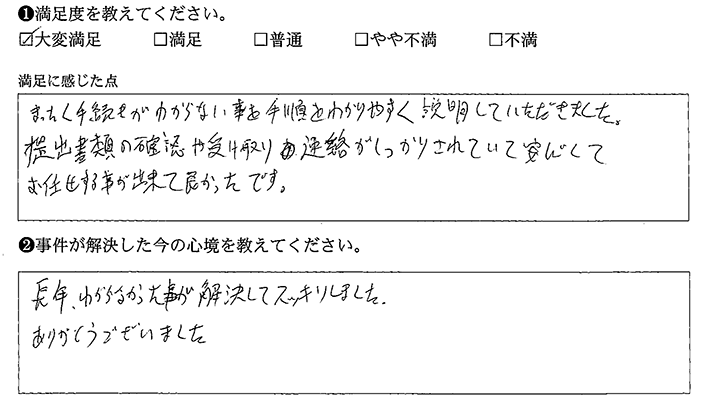 ❶満足度を教えてください。
☑大変満足 □満足 □普通 □やや不満 □不満
満足に感じた点
まったく手続きがわからない事を手順をわかりやすく説明していただきました。
提出書類の確認や受け取りの連絡がしっかりされていて安心して
お任せする事が出来て良かったです。
❷事件が解決した今の心境を教えてください。
長年、わからなかった事が解決してスッキリしました。
ありがとうございました